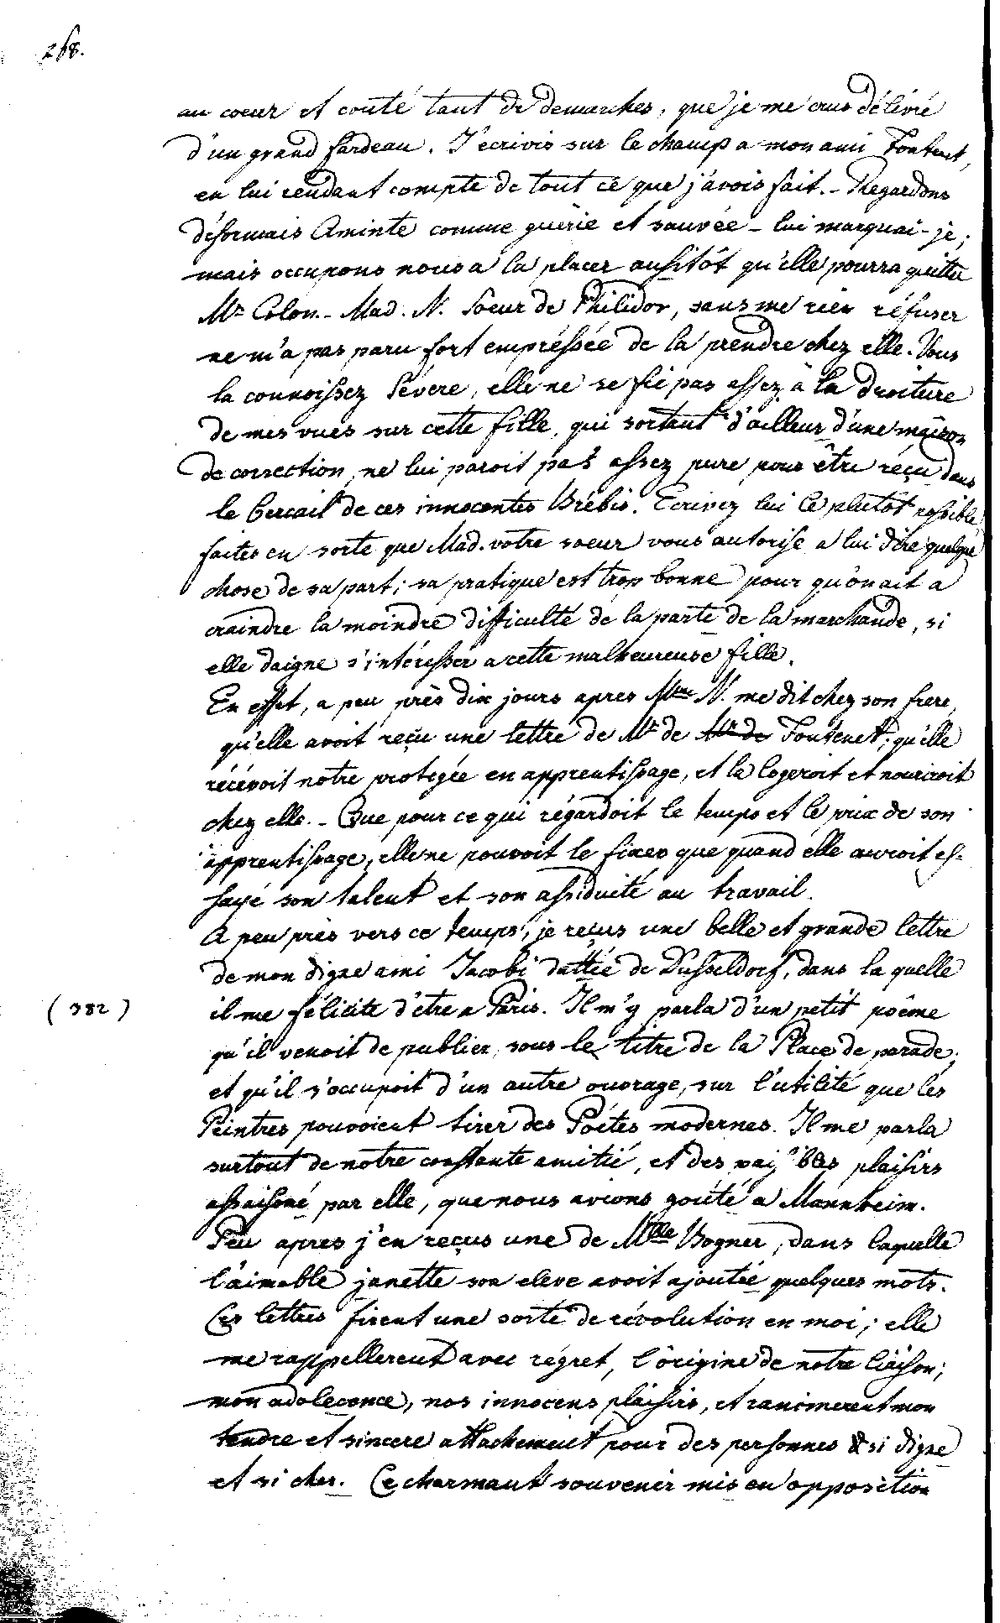 268.
au coeur et couté tant de demarches, que je me crus délivré
d'un grand fardeau. J'écrivis sur le champ a mon ami Fontenet,
en lui rendant compte de tout ce que j'avois fait. - Regardons
désormais Aminte comme guérie et sauvée - lui marquai-je;
mais occupons nous a la placer ausitôt qu'elle pourra quitter
Mr Colon. - Mad. N. soeur de Philidor, sans me rien réfuser
ne m'a pas paru fort empréssée de la prendre chez elle. Vous
la connoissez sévere, elle ne se fie pas assez à la droiture
de mes vues sur cette fille, qui sortant d'ailleur d'une maison
de correction, ne lui paroit pas assez pure pour être reçu dans
le bercail de ces innocentes Brébis. Ecrivez lui le plutôt possible,
faites en sorte que Mad. votre soeur vous autorise a lui dire quelque
chose de sa part; sa pratique est trop bonne pour qu'on ait a
craindre la moindre difficulté de la parte de la marchande, si
elle daigne s'intéresser a cette malheureuse fille.
En effet, a peu près dix jours apres Mme N. me dit chez son frere,
qu'elle avoit reçu une lettre de Mr de Mr de Fontenet; qu'elle
récévoit notre protegée en apprentissage, et la logeroit et nouriroit
chez elle. - Que pour ce qui régardoit le temps et le prix de son
apprentissage, elle ne pouvoit le fixer que quand elle auroit es-
sayé son talent et son assiduité au travail.
A peu près vers ce temps, je reçus une belle et grande lettre
de mon digne ami Jacobi dattée de Dusseldorf, dans la quelle
( 382 )
il me félicite d'etre a Paris. Il m'y parla d'un petit poême
qu'il venoit de publier, sous le titre de la Place de parade;
et qu'il s'occupoit d'un autre ouvrage, sur l'utilité que les
Peintres pouvoient tirer des Poétes modernes. Il me parla
surtout de notre constante amitié, et des paisibles plaisirs
assaisoné par elle, que nous avions goûté a Mannheim.
Peu apres j'en reçus une de Mlle Bogner, dans laquelle
l'aimable janette son eleve avoit ajoutée quelques mots.
Ces lettres firent une sorte de révolution en moi; elle
me rappellerent avec régret, l'origine de notre liaison;
mon adolecence, nos innocens plaisirs, et ranimerent mon
tendre et sincere attachement pour des personnes si digne
et si cher. Ce charmant souvenir mis en opposition